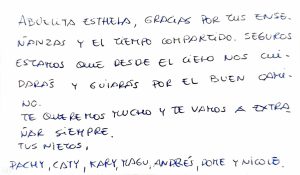 ABUELITA ESTHELA, GRACIAS POR TUS ENSE-
ÑANZAS Y EL TIEMPO COMPARTIDO. SEGUROS
ESTAMOS QUE DESDE EL CIELO NOS CUI-
DARÁS Y GUIARÁS POR EL BUEN CAMI-
NO.
TE QUEREMOS MUCHO Y TE VAMOS A EXTRA-
ÑAR SIEMPRE.
TUS NIETOS,
PACHY, CATY, KARY, MAGU, ANDRÉS, DOME Y NICOLE.